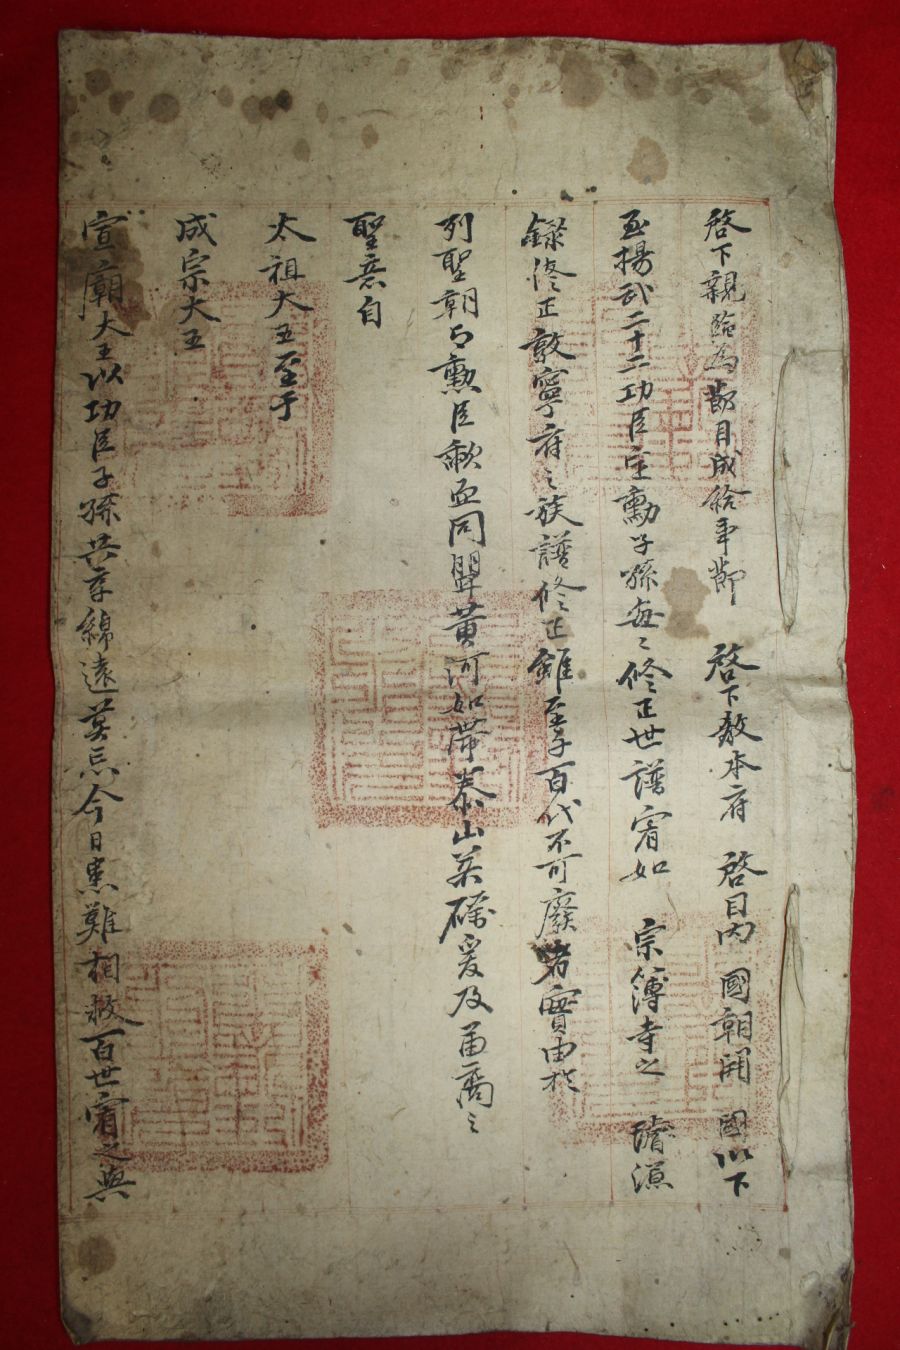 啓下親臨為節目成給事節 啓下敎本府 啓目內 國朝開 國以下
至揚武二十二功臣宣勳子孫每〻修正世譜宥如 宗簿寺之 璿源
錄修正敦寧府之族譜修正雖至于百代不可廢者實由於
列聖朝與勳臣歃血同盟黃河如帶泰山若礪爰及苗裔之
聖意自
太祖大王至于
成宗大王
宣廟大王以功臣子孫共享綿遠莫忘今日患難相救百世宥之與